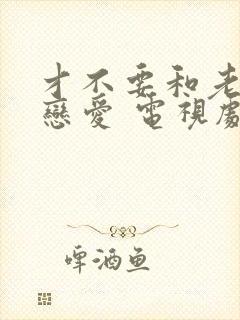 才不要和老
戀愛 電視劇
啤酒鱼